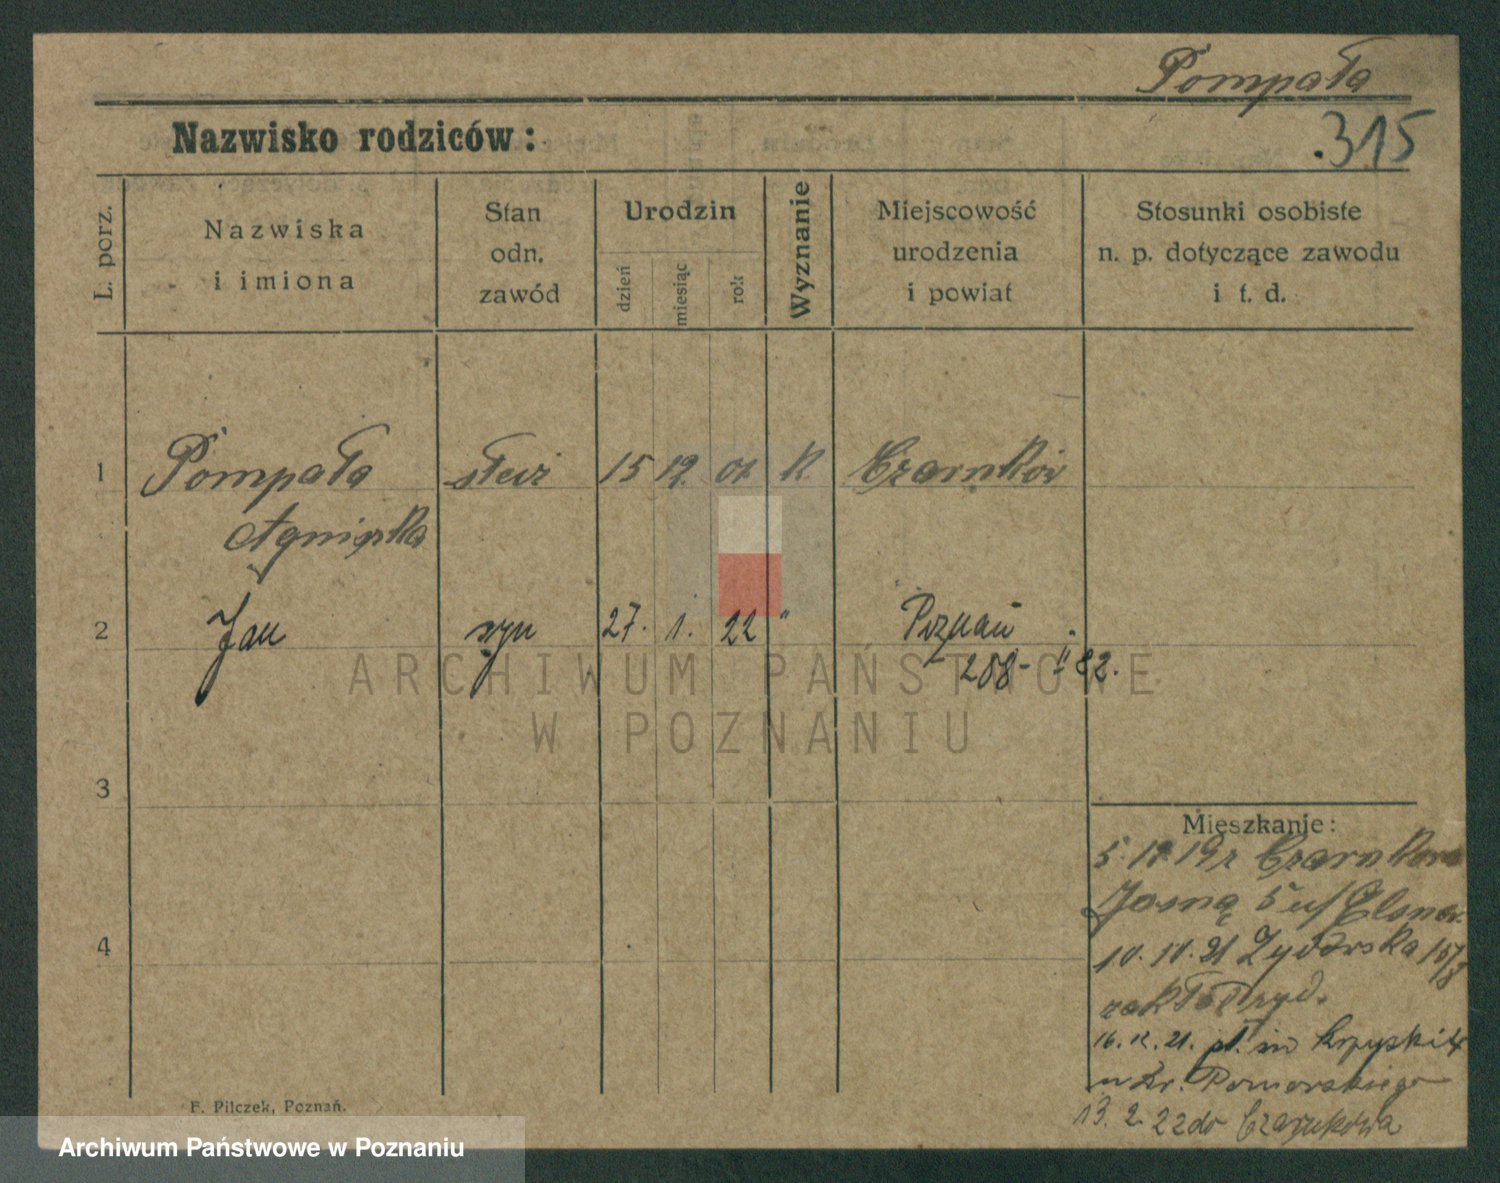 Pompała
.315
Nazwisko rodziców:
L. porz.
Nazwiska
i imiona
Stan
odn.
zawód
Urodzin
dzień
miesiąc
rok
Wyznanie
Miejscowość
urodzenia
i powiat
Stosunki osobiste
n. p. dotyczące zawodu
i t. d.
1 Pompała 15 12. K. Czarnków
Agnieszka
2 Jan syn 27. 1. 22 " Poznań
208- II 82.
ARCHIWUM PAŃSTWOWE
W POZNANIU
3
Mieszkanie:
5 19 z Czarnkowa
Jasna 5 u/ Elsner
4
10. 10. 21 Żydowska 15/
zakład żyd.
16. 12. 21. pl. św Krzyski 4
u Dr. Pomorskiego
13. 2. 22 do Czarnkowa
F. Pilczek, Poznań.
Archiwum Państwowe w Poznaniu